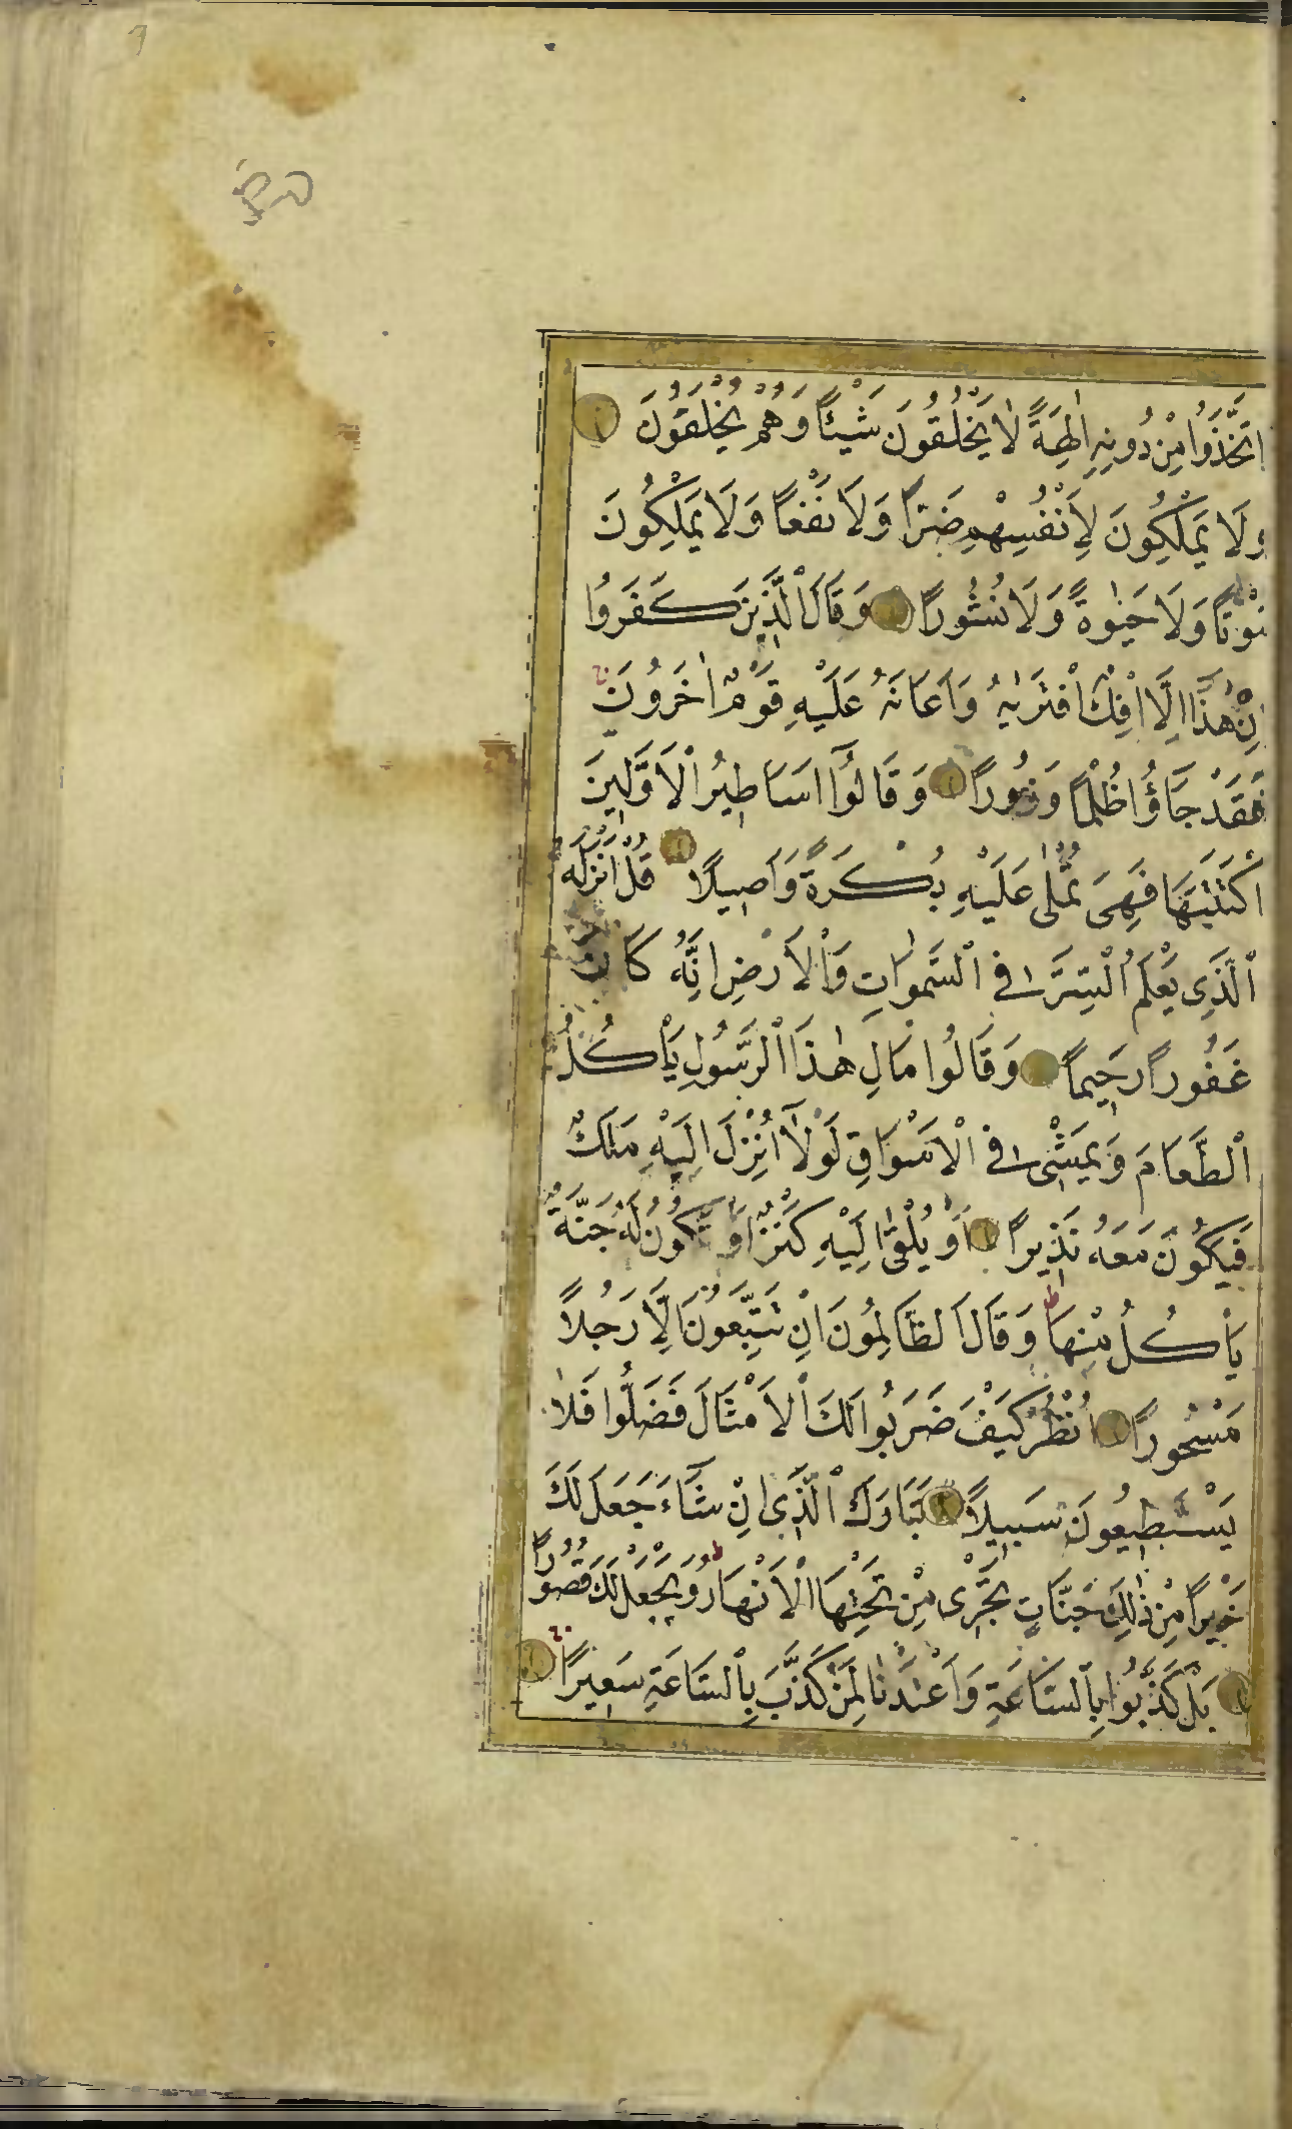 اتَّخَذُوا مِنْ دُونِهِ اٰلِهَةً لَا يَخْلُقُونَ شَيْئًا وَهُمْ يُخْلَقُونَ
وَلَا يَمْلِكُونَ لِاَنْفُسِهِمْ ضَرًّا وَلَا نَفْعًا وَلَا يَمْلِكُونَ
مَوْتًا وَلَا حَيٰوةً وَلَا نُشُورًا وَقَالَ الَّذِينَ كَفَرُوا
اِنْ هٰذَا اِلَّا اِفْكٌ افْتَرٰيهُ وَاَعَانَهُ عَلَيْهِ قَوْمٌ اٰخَرُونَ
فَقَدْ جَاؤُا ظُلْمًا وَزُورًا وَقَالُوا اَسَاطِيرُ الْاَوَّلِينَ
اكْتَتَبَهَا فَهِيَ تُمْلٰى عَلَيْهِ بُكْرَةً وَاَصِيلًا قُلْ اَنْزَلَهُ
الَّذِي يَعْلَمُ السِّرَّ فِي السَّمٰوَاتِ وَالْاَرْضِ اِنَّهُ كَانَ
غَفُورًا رَحِيمًا وَقَالُوا مَالِ هٰذَا الرَّسُولِ يَأْكُلُ
الطَّعَامَ وَيَمْشِي فِي الْاَسْوَاقِ لَوْلَا اُنْزِلَ اِلَيْهِ مَلَكٌ
فَيَكُونَ مَعَهُ نَذِيرًا اَوْ يُلْقٰى اِلَيْهِ كَنْزٌ اَوْ تَكُونُ لَهُ جَنَّةٌ
يَأْكُلُ مِنْهَا ط وَقَالَ الظَّالِمُونَ اِنْ تَتَّبِعُونَ اِلَّا رَجُلًا
مَسْحُورًا اُنْظُرْ كَيْفَ ضَرَبُوا لَكَ الْاَمْثَالَ فَضَلُّوا فَلَا
يَسْتَطِيعُونَ سَبِيلًا تَبَارَكَ الَّذِي اِنْ شَاءَ جَعَلَ لَكَ
خَيْرًا مِنْ ذٰلِكَ جَنَّاتٍ تَجْرِي مِنْ تَحْتِهَا الْاَنْهَارُ وَيَجْعَلْ لَكَ قُصُورًا
بَلْ كَذَّبُوا بِالسَّاعَةِ وَاَعْتَدْنَا لِمَنْ كَذَّبَ بِالسَّاعَةِ سَعِيرًا